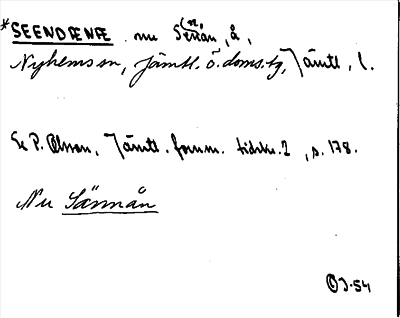 *SEENDÆNÆ nu Sennån, å,
Nyhems sn, Jämtl. ö. doms.tg, Jämtl. l.
Ur P. Olsson, Jämtl. fornm. tidskr. 2, s. 178.
Nu Sännån
OJ-54